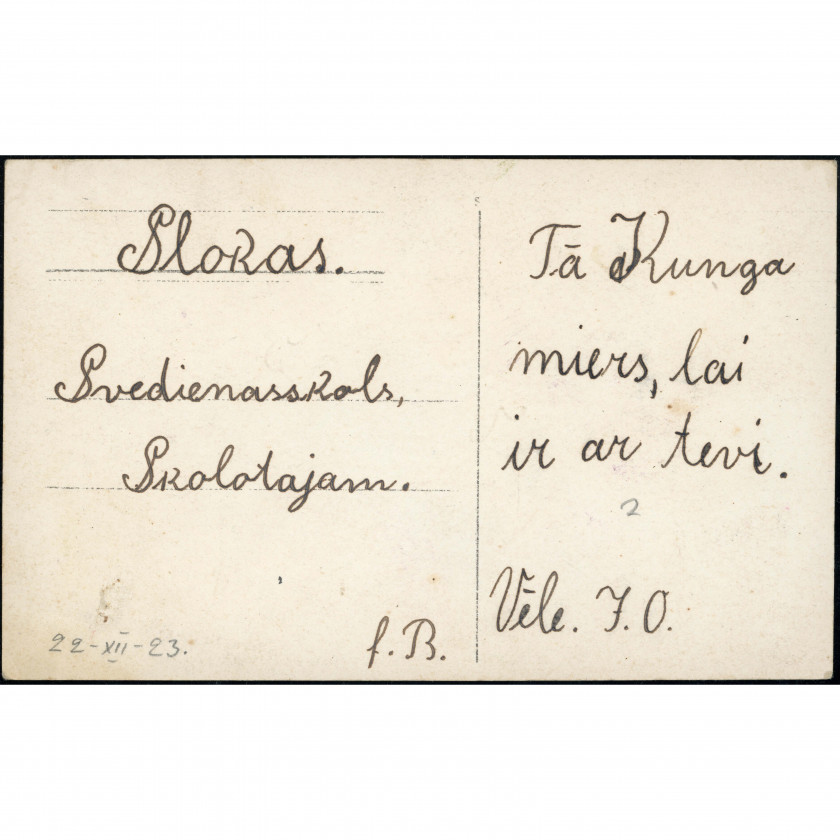 Slokas.
Svedienasskols,
Skolotajam.
22-XII-23.
f. B.
Tā Kunga
miers, lai
ir ar tevi.
2
Vēle. J. O.